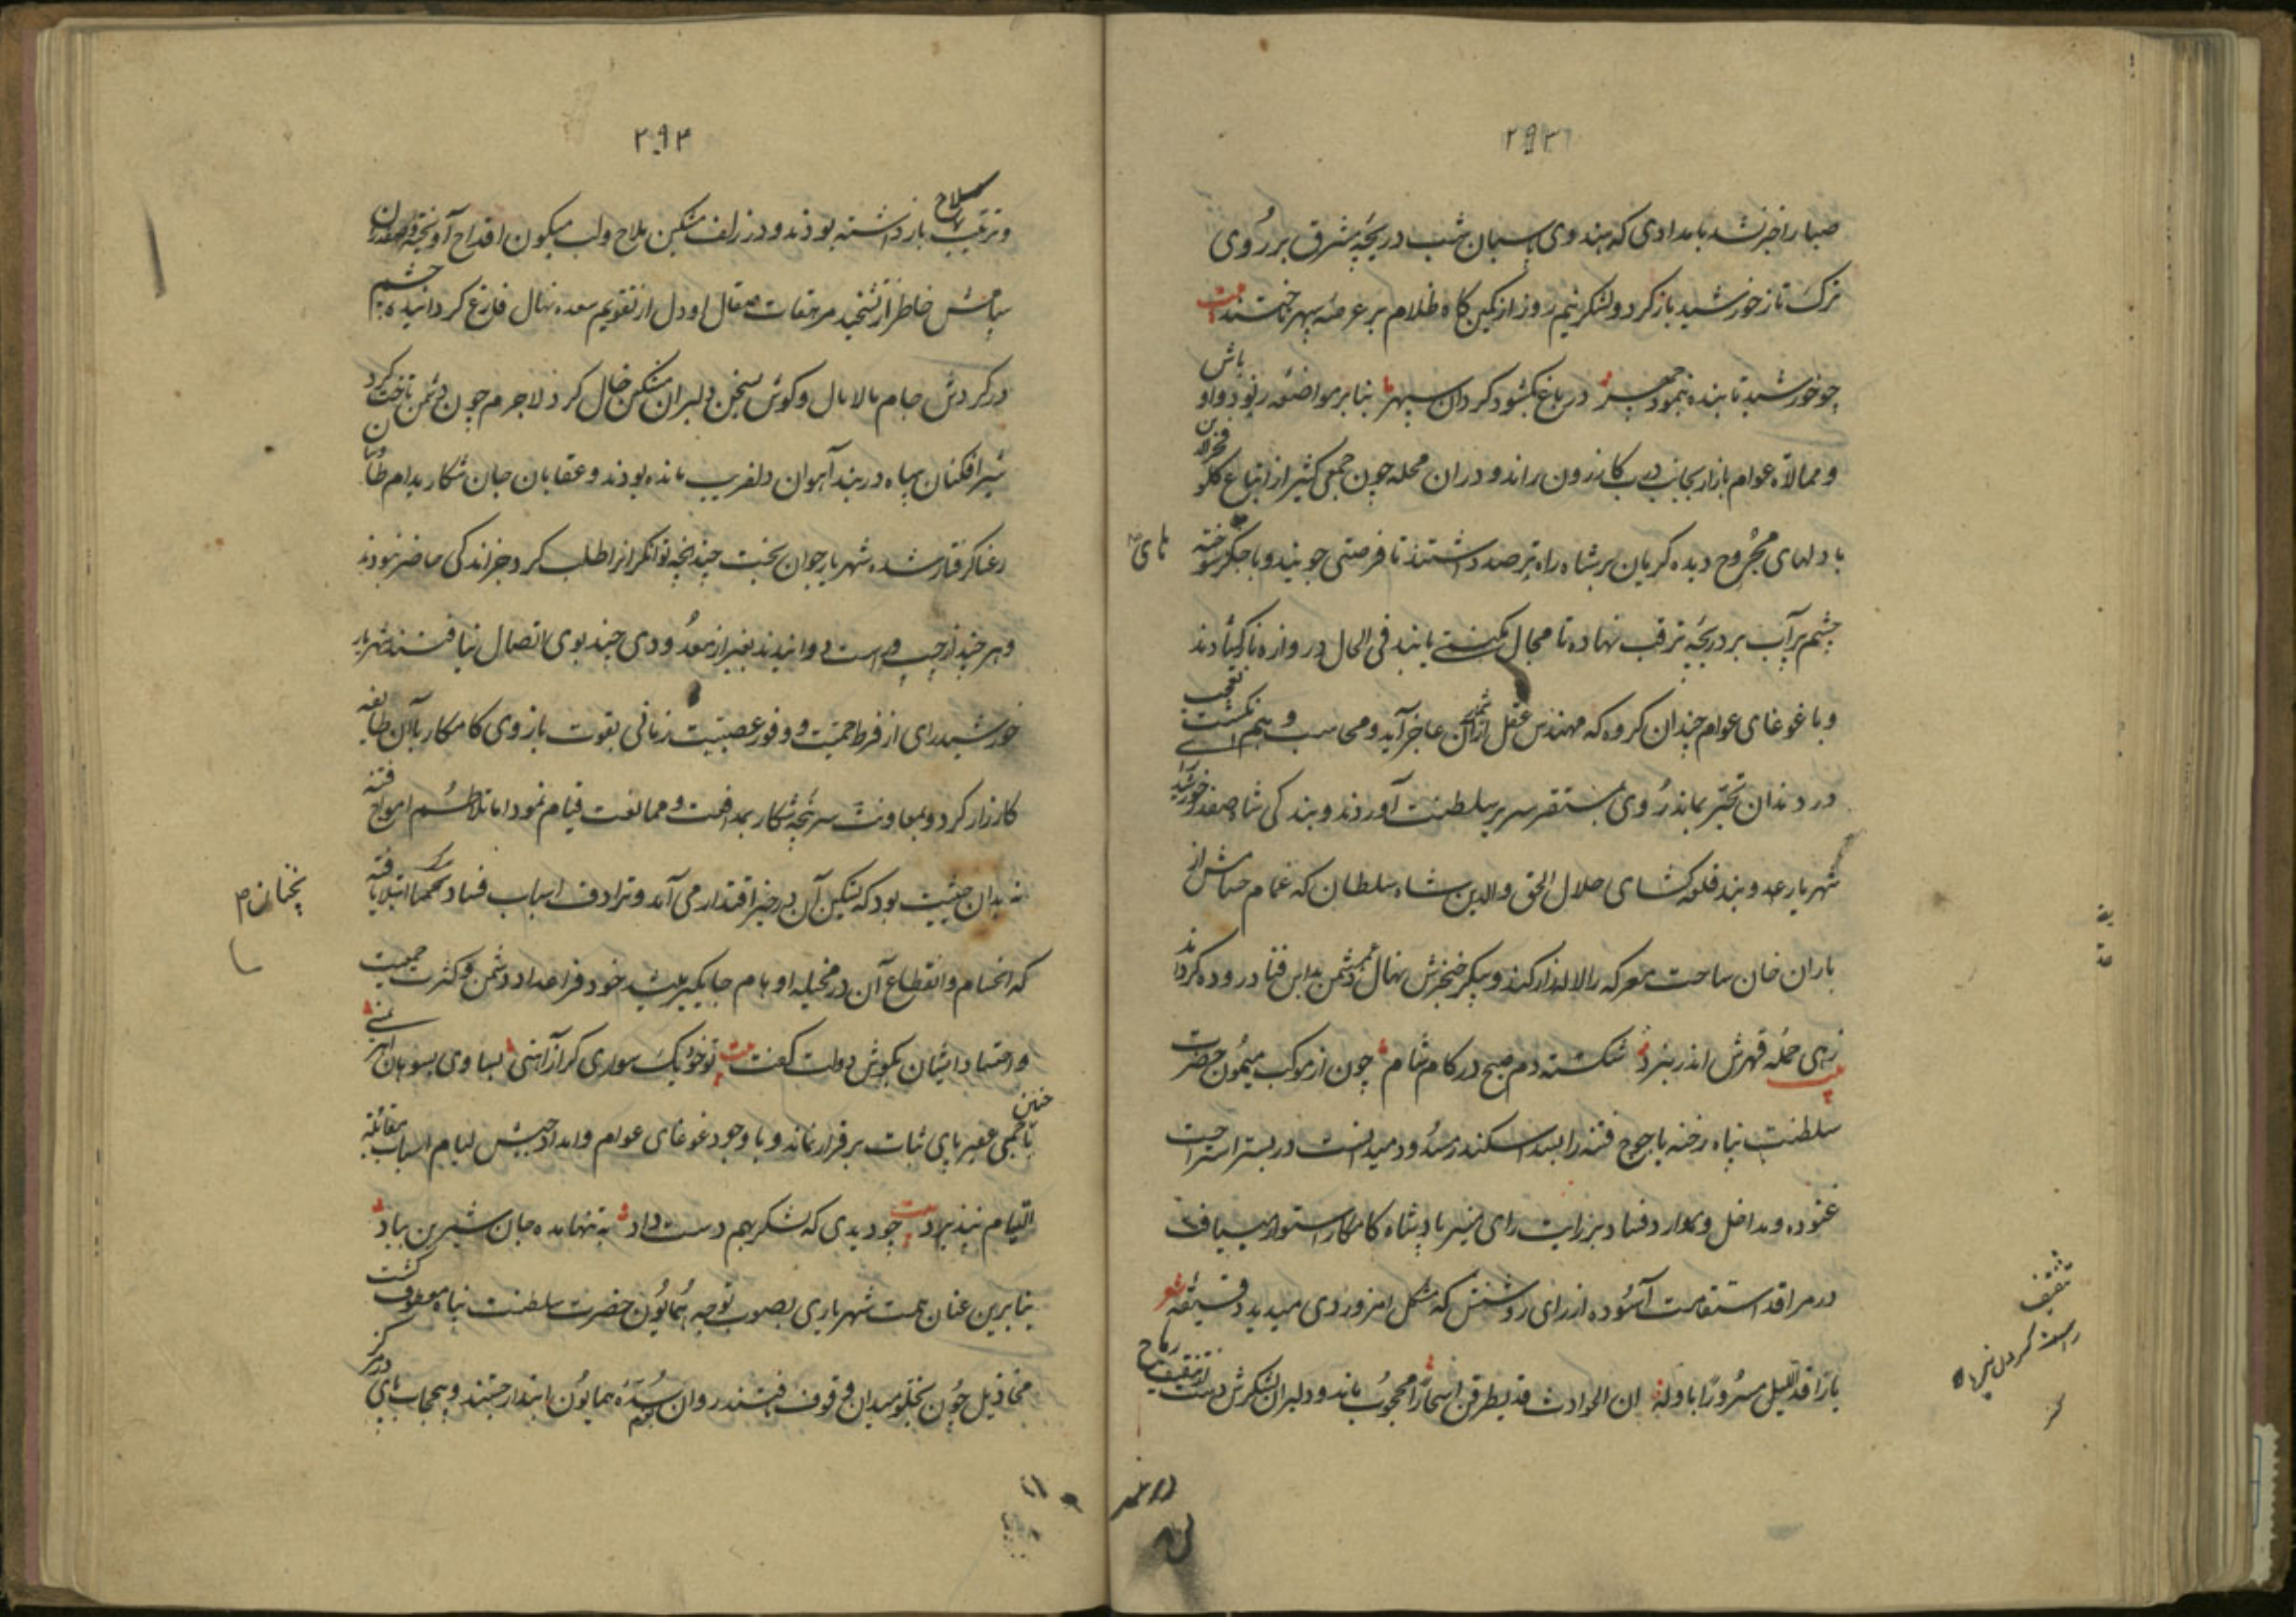 ۲۹۳
صبا را خبر شد بامدادی که هندوی پاسبان شب دریچه مشرق بر روی
ترک تاز خورشید باز کرد و لشکر نیم روز از کمین کاه ظلام بر عرصه سپهر تاختند بیت
چو خورشید تابنده بنمود چهر در باغ بکشود کردان سپهر بنابر مواضعه رنود و اوباش
و ممالاة عوام بازار بجانب درب کازرون راند و دران محله چون جمعی کثیر از اتباع کلو فخرالدین
با دلهای مجروح دیده کریان بر شاه راه ترصد داشتند تا فرصتی جویند و با جکر سوخته
چشم پر آب بر دریچه ترقب نهاده تا مجال مکنتی یابند فی الحال دروازه باز کشادند
و با غوغای عوام چندان کروه که مهندس عقل از شمار آن عاجز آید و محاسب وهم انکشت تعجب
در دندان تحیر بماند روی بمستقر سریر سلطنت آوردند و بندکی شاه صفدر خورشیدرای
شهریار عدو بند قلعه کشای جلال الحق والدین شاه سلطان که غمام حسامش از
باران خان ساحت معرکه را لاله زار کند و پیکر خنجرش نهال عمر دشمن بداس فنا دروده کرداند
بیت زهی حمله قهرش اندر نبرد شکسته دم صبح در کام شام چون از موکب میمون حضرت
سلطنت پناه رخنه یاجوج فتنه را بسد اسکندر مسدود میدانست در بستر استراحت
غنوده و مداخل و موارد فساد برزانت رای منیر پادشاه کامکار استوار مییافت
در مراقد استقامت آسوده از رای روشنش که مشکل امروز دی میدید دقیقه شعر
یا راقد اللیل مسرورا باوله ان الحوادث قد یطرقن اسحارا محجوب ماند و دلیران لشکرش دست از تثقیف رماح
تثقیف
راست کردن نیزه
۲۹۴
و ترتیب سلاح بازداشته بوذند و در زلف مشکین ملاح و لب میکون اقداح آویخته صفدران
سپاهش خاطر از تشحید مرهفات صقال و دل از تقویم صعده نهال فارغ کردانیده چشم
در کردش جام مالامال و کوش بسخن دلبران مشکین خال کرد لاجرم چون دشمن تاختن کرد
شیرافکنان سپاه در بند آهوان دلفریب مانده بودند و عقابان جان شکار بدام طاوسان
رعنا کرفتار شده شهریار جوان بخت چندانچه نوانکرانرا طلب کرد جز اندکی حاضر نبودند
و هر چند از چپ و راست دوانیدند بغیر از معدودی چند بوی اتصال نیافتند شهریار
خورشیدرای از فرط حمیت و وفور عصبیت زمانی بقوت بازوی کامکار با آن طایفه
کارزار کرد و بمعاونت سرپنجه شکار بمدافعت و ممانعت قیام نمود اما تلاطم امواج فتنه
نه بدان حیثیت بود که تسکین آن در حیز اقتدار می آمد و ترادف اسباب فساد استیلا یافته
که انحسام و انقطاع آن در مخیله اوهام جایکیر باشد خرد فرا امداد دشمن و کثرت جمعیت
و احتشاد ایشان بکوش دولت کفت بیت تو خود یک سواری کر از آهنی بساوی بسوهان آهرمنی
با جمعی چنین عفیر پای ثبات برقرار نماند و با وجود غوغای عوام و امداد جیش لیام اسباب مقاتله
التیام نپذیرد بیت چو دیدی که لشکر بهم دست داد به تنها مده جان شیرین بباد
بنابرین عنان همت شهریاری بصوب توجه همایون حضرت سلطنت پناه معطوف کشت
مخاذیل چون بخلو میدان وقوف یافتند روان بسده همایون ابتدار جستند و بیحجاب پای در مرکز